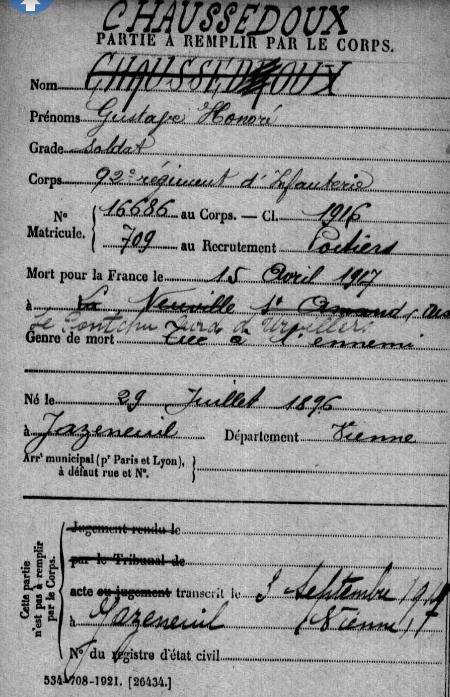 CHAUSSEDOUX
PARTIE À REMPLIR PAR LE CORPS.
Nom CHAUSSEDOUX
Prénoms Gustave Honoré
Grade Soldat
Corps 92e régiment d'Infanterie
N° Matricule. 16686 au Corps. — Cl. 1916
709 au Recrutement Poitiers
Mort pour la France le 15 Avril 1917
à La Neuville St Amand (Aisne
Le sud d'Urvillers
Genre de mort Tué à l'ennemi
Né le 29 Juillet 1896
à Jazeneuil Département Vienne
Arrt municipal (pr Paris et Lyon), à défaut rue et N°.
Cette partie n'est pas à remplir par le Corps.
Jugement rendu le
par le Tribunal de
acte ou jugement transcrit le 3 Septembre
à Jazeneuil (Vienne)
N° du registre d'état civil
534-708-1921. [26434.]